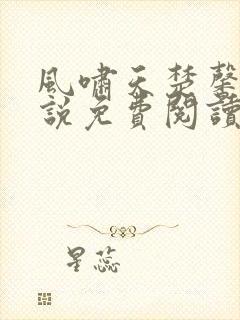 風嘯天楚馨
說免費閱讀
星蕊